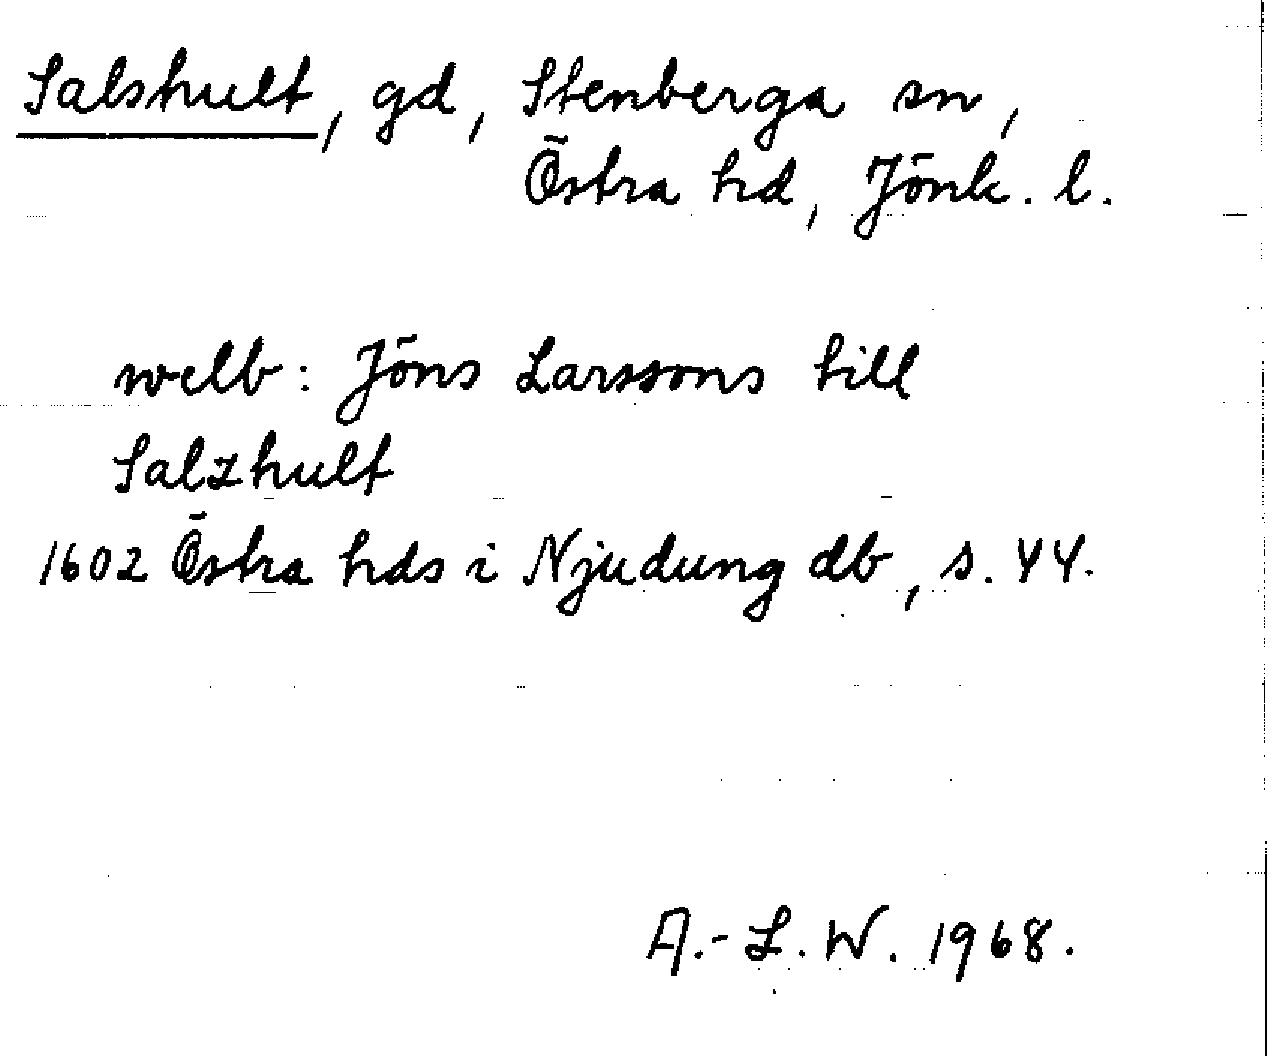 Salshult, gd, Stenberga sn,
Östra hd, Jönk. l.
welb: Jöns Larssons till
Salzhult
1602 Östra hds i Njudung db, s. 44.
A.-L. W. 1968.